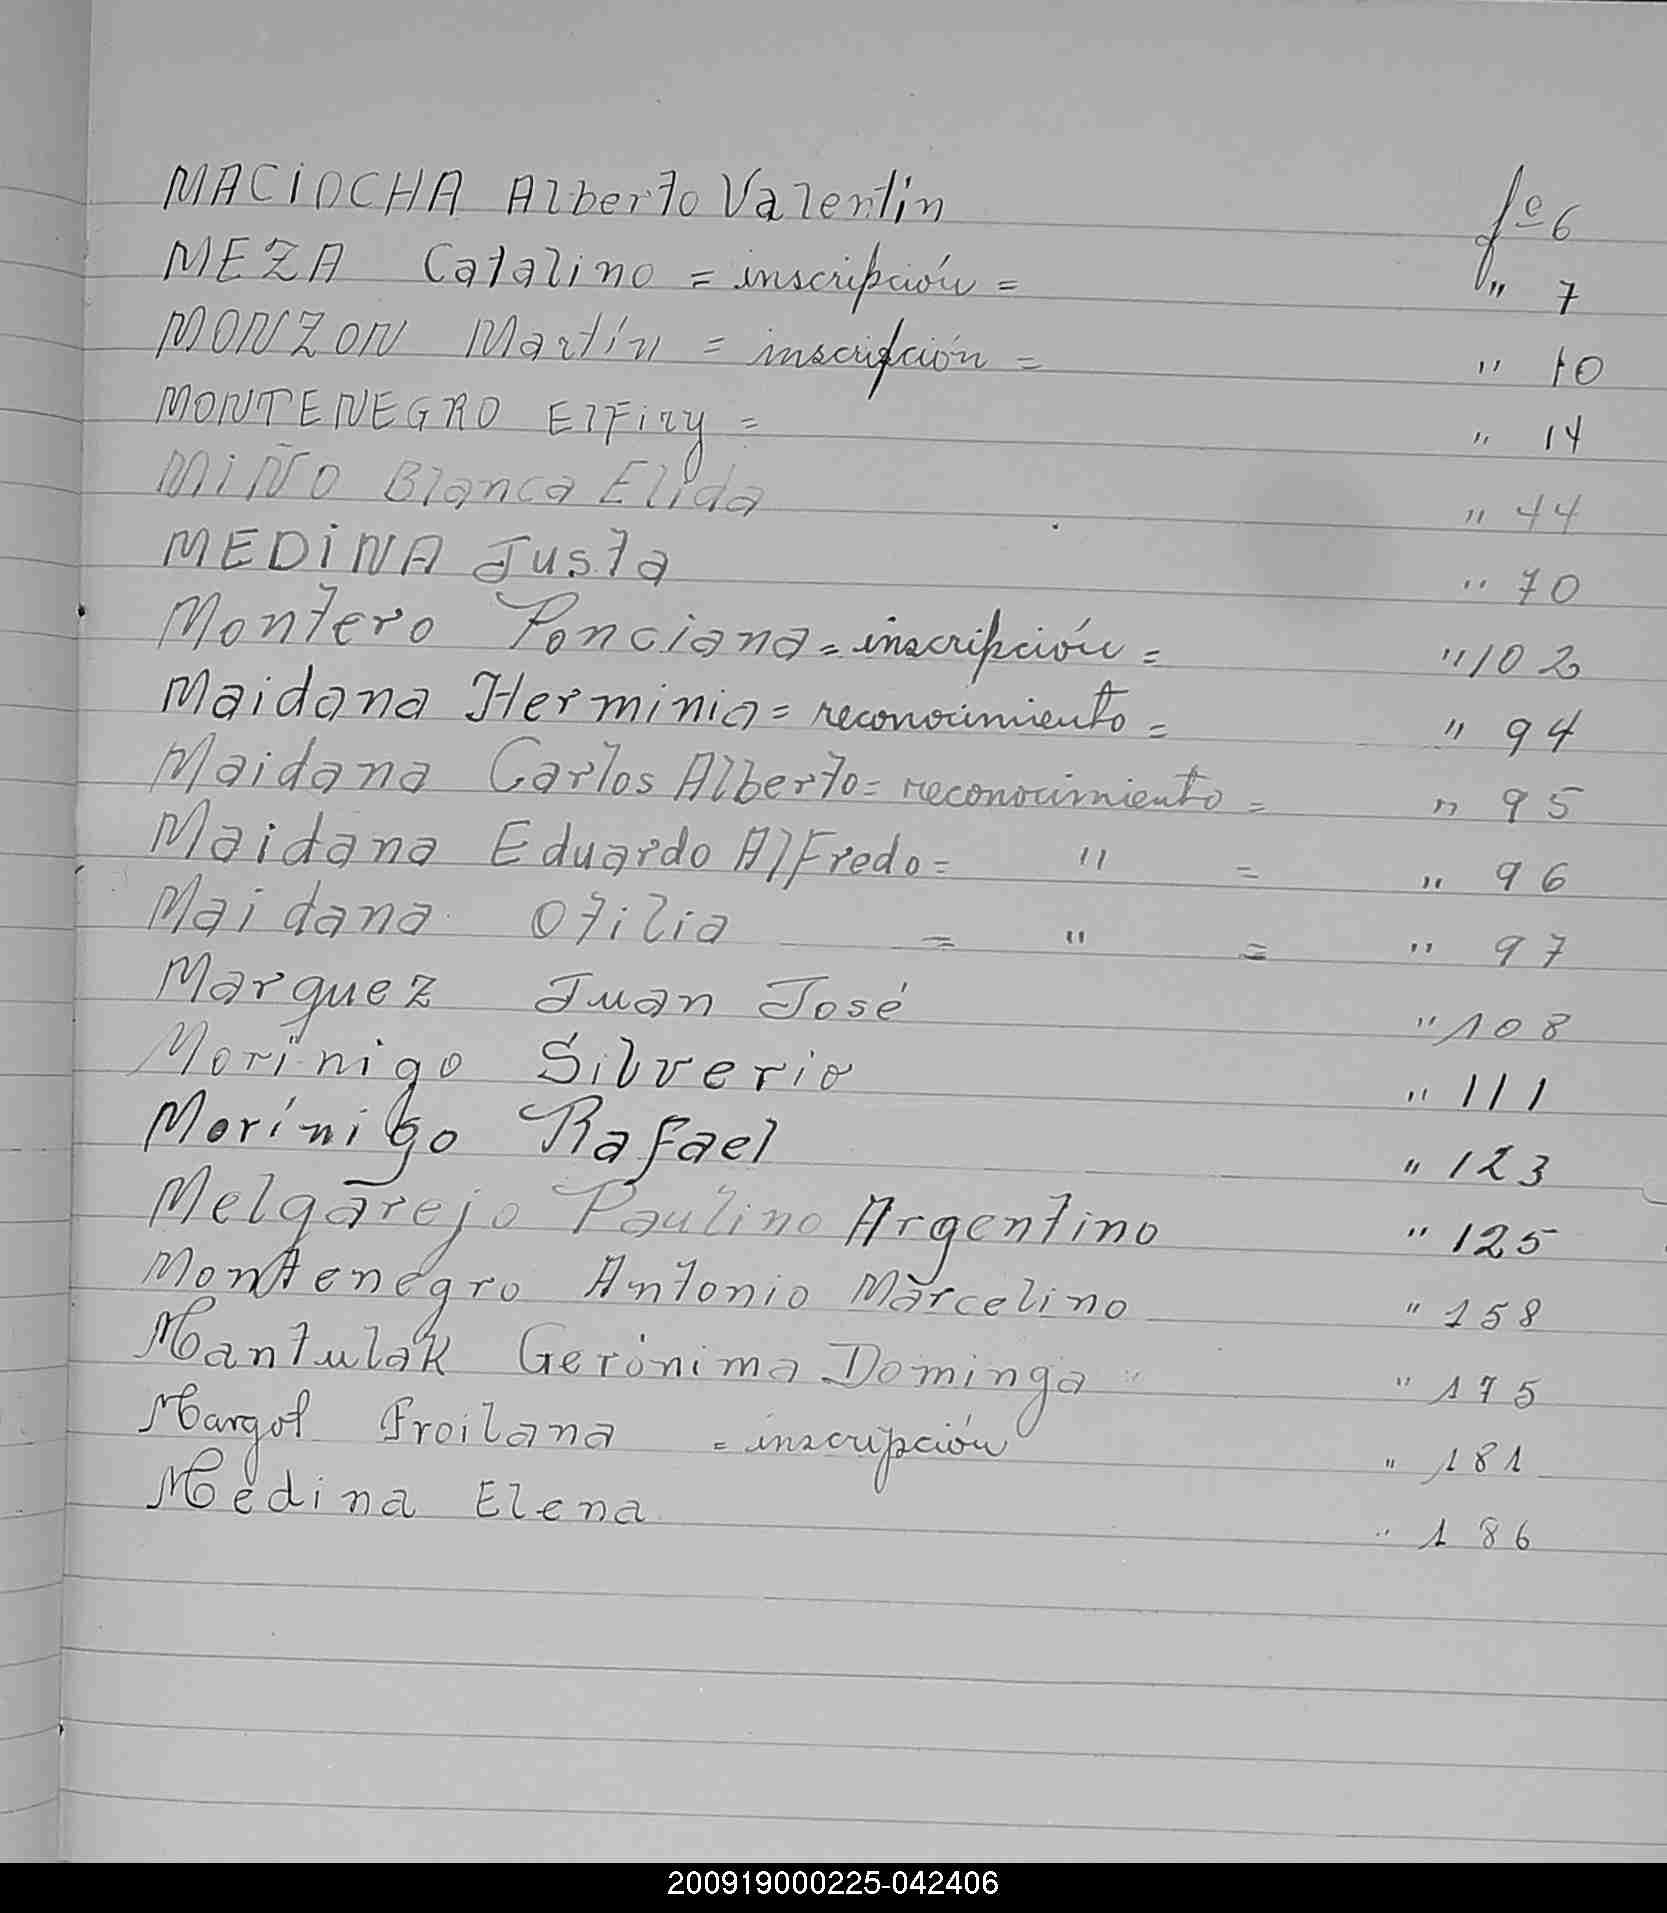 MACIOCHA Alberto Valentin fº 6
MEZA Catalino = inscripción = " 7
MONZON Martín = inscripción = " 10
MONTENEGRO ElFiry = " 14
MIÑO Blanca Elida " 44
MEDINA Justa " 70
Montero Ponciana = inscripción = " 102
Maidana Herminia = reconocimiento = " 94
Maidana Carlos Alberto = reconocimiento = " 95
Maidana Eduardo AlFredo = " = " 96
Maidana Otilia = " = " 97
Marquez Juan José " 108
Morínigo Silverio " 111
Morínigo Rafael " 123
Melgarejo Paulino Argentino " 125
Montenegro Antonio Marcelino " 158
Mantulak Gerónima Dominga " 175
Margot Froilana = inscripción " 181
Medina Elena " 186
200919000225-042406